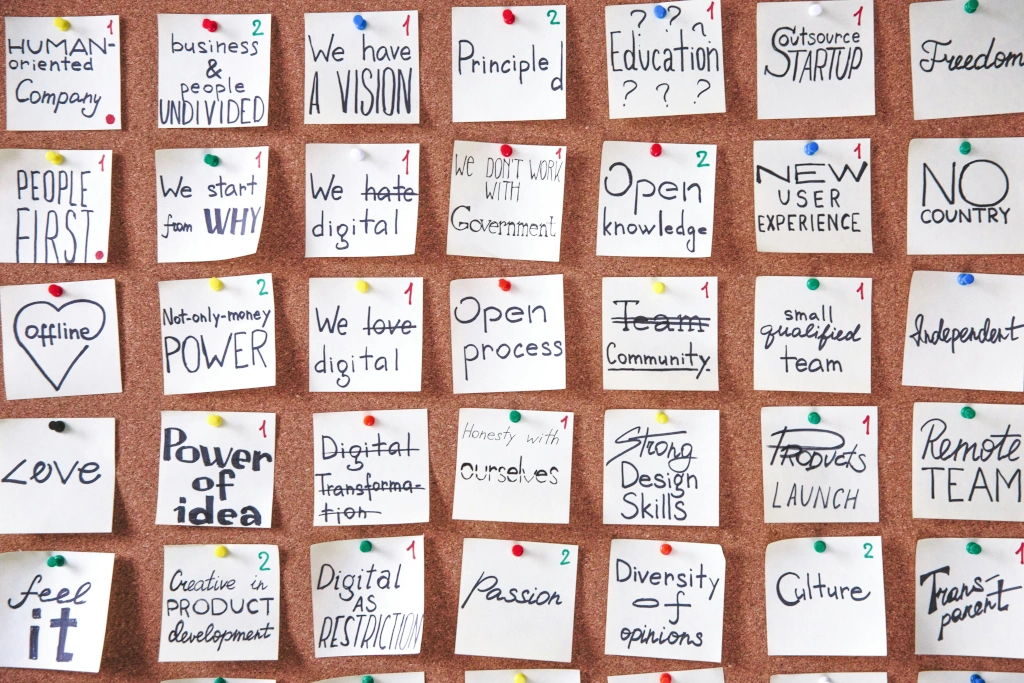 HUMAN-
oriented
Company
1
business
&
people
UNDIVIDED
2
We have
A VISION
1
Principled
2
? ? ?
Education
? ? ?
1
Outsource
STARTUP
1
Freedom
PEOPLE
FIRST
1
We start
from WHY
1
We hate
digital
1
We DON'T WORK
WITH
Government
1
Open
knowledge
2
NEW
USER
EXPERIENCE
1
NO
COUNTRY
offline
Not-only-money
POWER
2
We love
digital
1
Open
process
Team
Community
1
small
qualified
team
1
Independent
Love
Power
of
idea
1
Digital
Transforma-
tion
Honesty with
ourselves
1
Strong
Design
Skills
PRODUCTS
LAUNCH
1
Remote
TEAM
feel
it
Creative in
PRODUCT
development
2
Digital
AS
RESTRICTION
1
Passion
2
Diversity
of
opinions
Culture
2
Trans-
parent
1